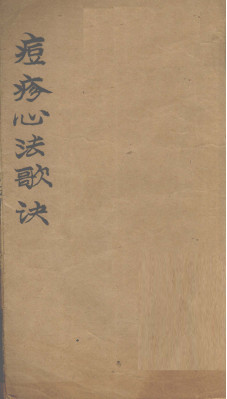 痘疹心法歌诀